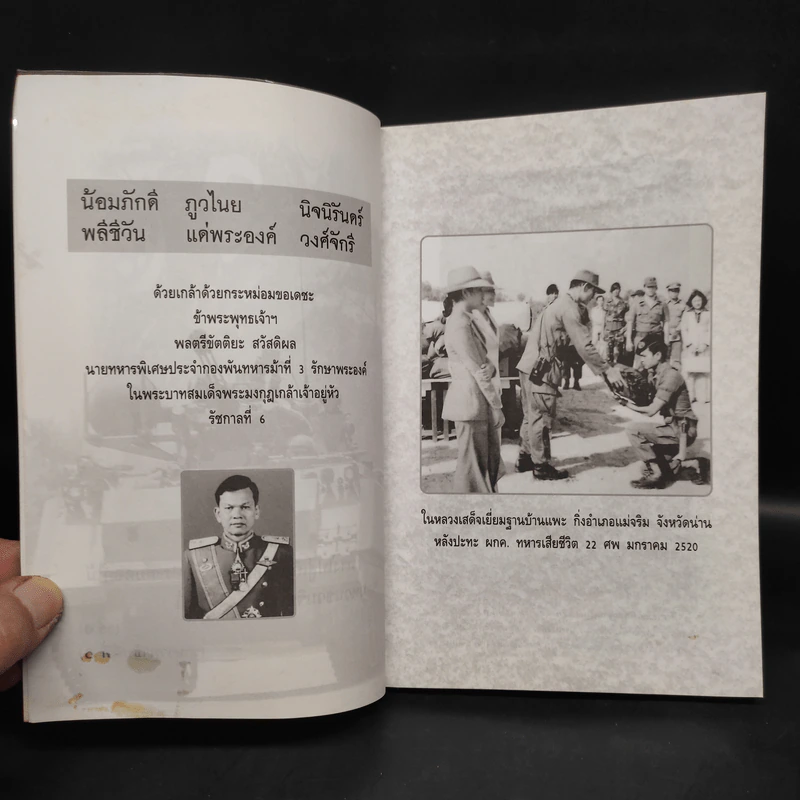 น้อมภักดิ์ ภูวไนย นิจนิรันดร์
พลีชีวัน แด่พระองค์ วงศ์จักรี
ด้วยเกล้าด้วยกระหม่อมขอเดชะ
ข้าพระพุทธเจ้าฯ
พลตรีขัตติยะ สวัสดิผล
นายทหารพิเศษประจำกองพันทหารม้าที่ 3 รักษาพระองค์
ในพระบาทสมเด็จพระมงกุฎเกล้าเจ้าอยู่หัว
รัชกาลที่ 6
ในหลวงเสด็จเยี่ยมฐานบ้านแพะ กิ่งอำเภอแม่จริม จังหวัดน่าน
หลังปะทะ ผกค. ทหารเสียชีวิต 22 ศพ มกราคม 2520